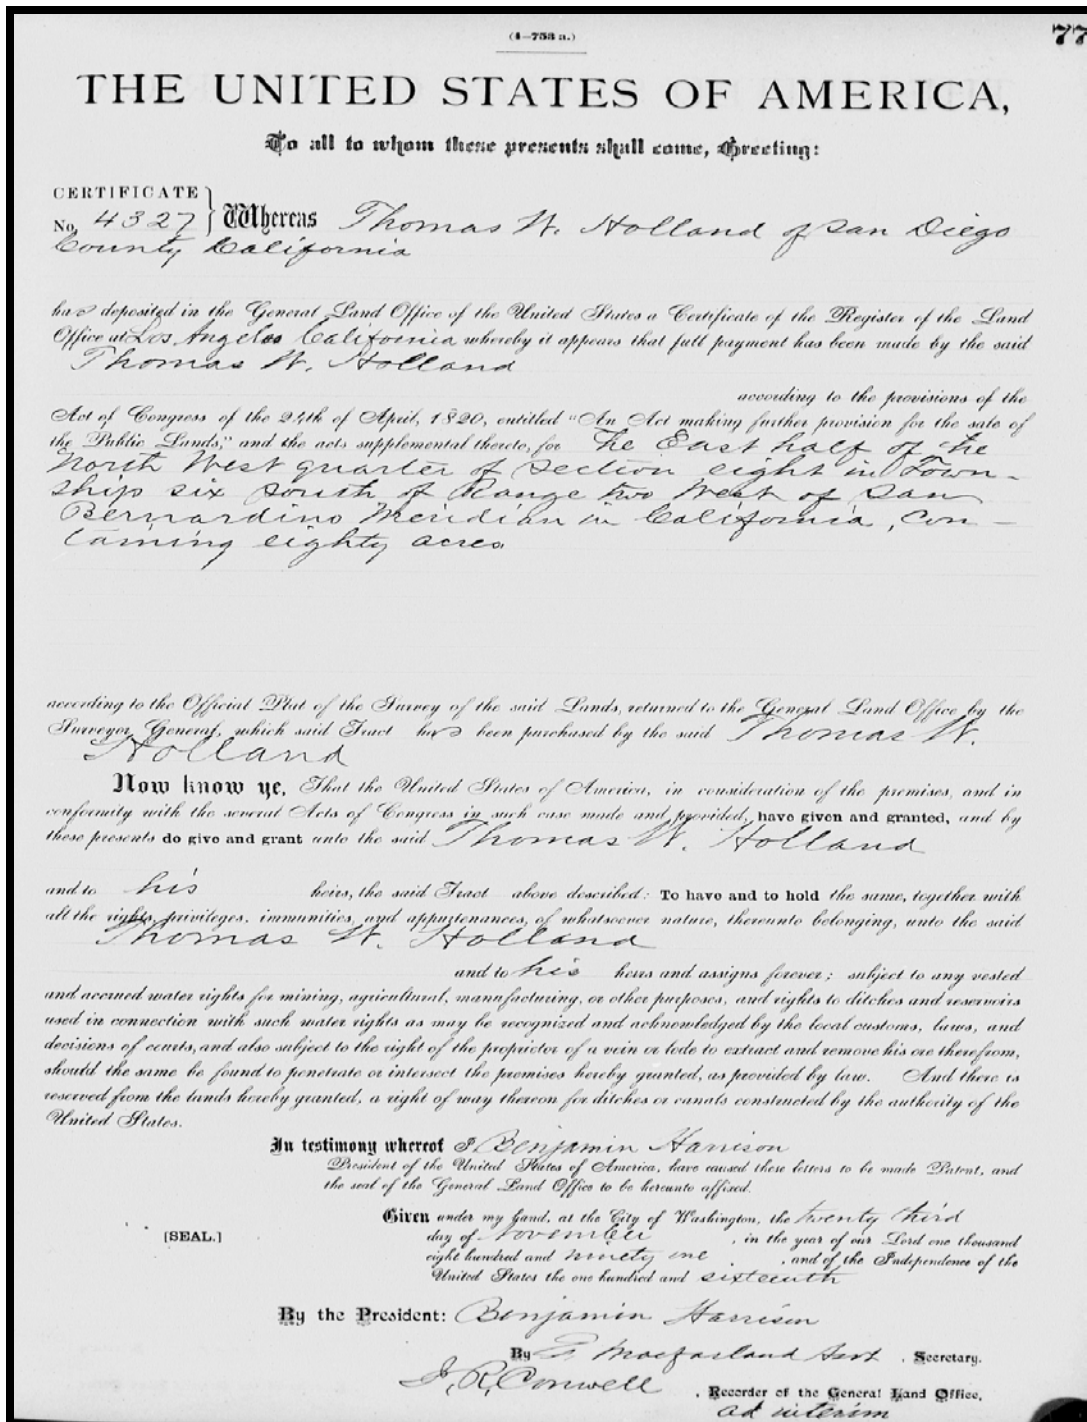 (4—758 a.)
77
THE UNITED STATES OF AMERICA,
To all to whom these presents shall come, Greeting:
CERTIFICATE
No. 4327 } Whereas Thomas W. Holland of San Diego
County California
has deposited in the General Land Office of the United States a Certificate of the Register of the Land
Office at Los Angeles California whereby it appears that full payment has been made by the said
Thomas W. Holland
according to the provisions of the
Act of Congress of the 24th of April, 1820, entitled "An Act making further provision for the sale of
the Public Lands," and the acts supplemental thereto, for The East half of the
North West quarter of Section eight in Town-
ship six South of Range two West of San
Bernardino Meridian in California, con-
taining eighty acres
according to the Official Plat of the Survey of the said Lands, returned to the General Land Office by the
Surveyor General, which said Tract has been purchased by the said Thomas W.
Holland
Now know ye, That the United States of America, in consideration of the premises, and in
conformity with the several Acts of Congress in such case made and provided, have given and granted, and by
these presents do give and grant unto the said Thomas W. Holland
and to his heirs, the said Tract above described: To have and to hold the same, together with
all the rights, privileges, immunities, and appurtenances, of whatsoever nature, thereunto belonging, unto the said
Thomas W. Holland
and to his heirs and assigns forever; subject to any vested
and accrued water rights for mining, agricultural, manufacturing, or other purposes, and rights to ditches and reservoirs
used in connection with such water rights as may be recognized and acknowledged by the local customs, laws, and
decisions of courts, and also subject to the right of the proprietor of a vein or lode to extract and remove his ore therefrom,
should the same be found to penetrate or intersect the premises hereby granted, as provided by law. And there is
reserved from the lands hereby granted, a right of way thereon for ditches or canals constructed by the authority of the
United States.
In testimony whereof I, Benjamin Harrison
President of the United States of America, have caused these letters to be made Patent, and
the seal of the General Land Office to be hereunto affixed.
Given under my hand, at the City of Washington, the twenty third
[SEAL.] day of November, in the year of our Lord one thousand
eight hundred and ninety one, and of the Independence of the
United States the one hundred and sixteenth
By the President: Benjamin Harrison
By Macfarland Asst. Secretary.
J. R. Conwell, Recorder of the General Land Office,
ad interim